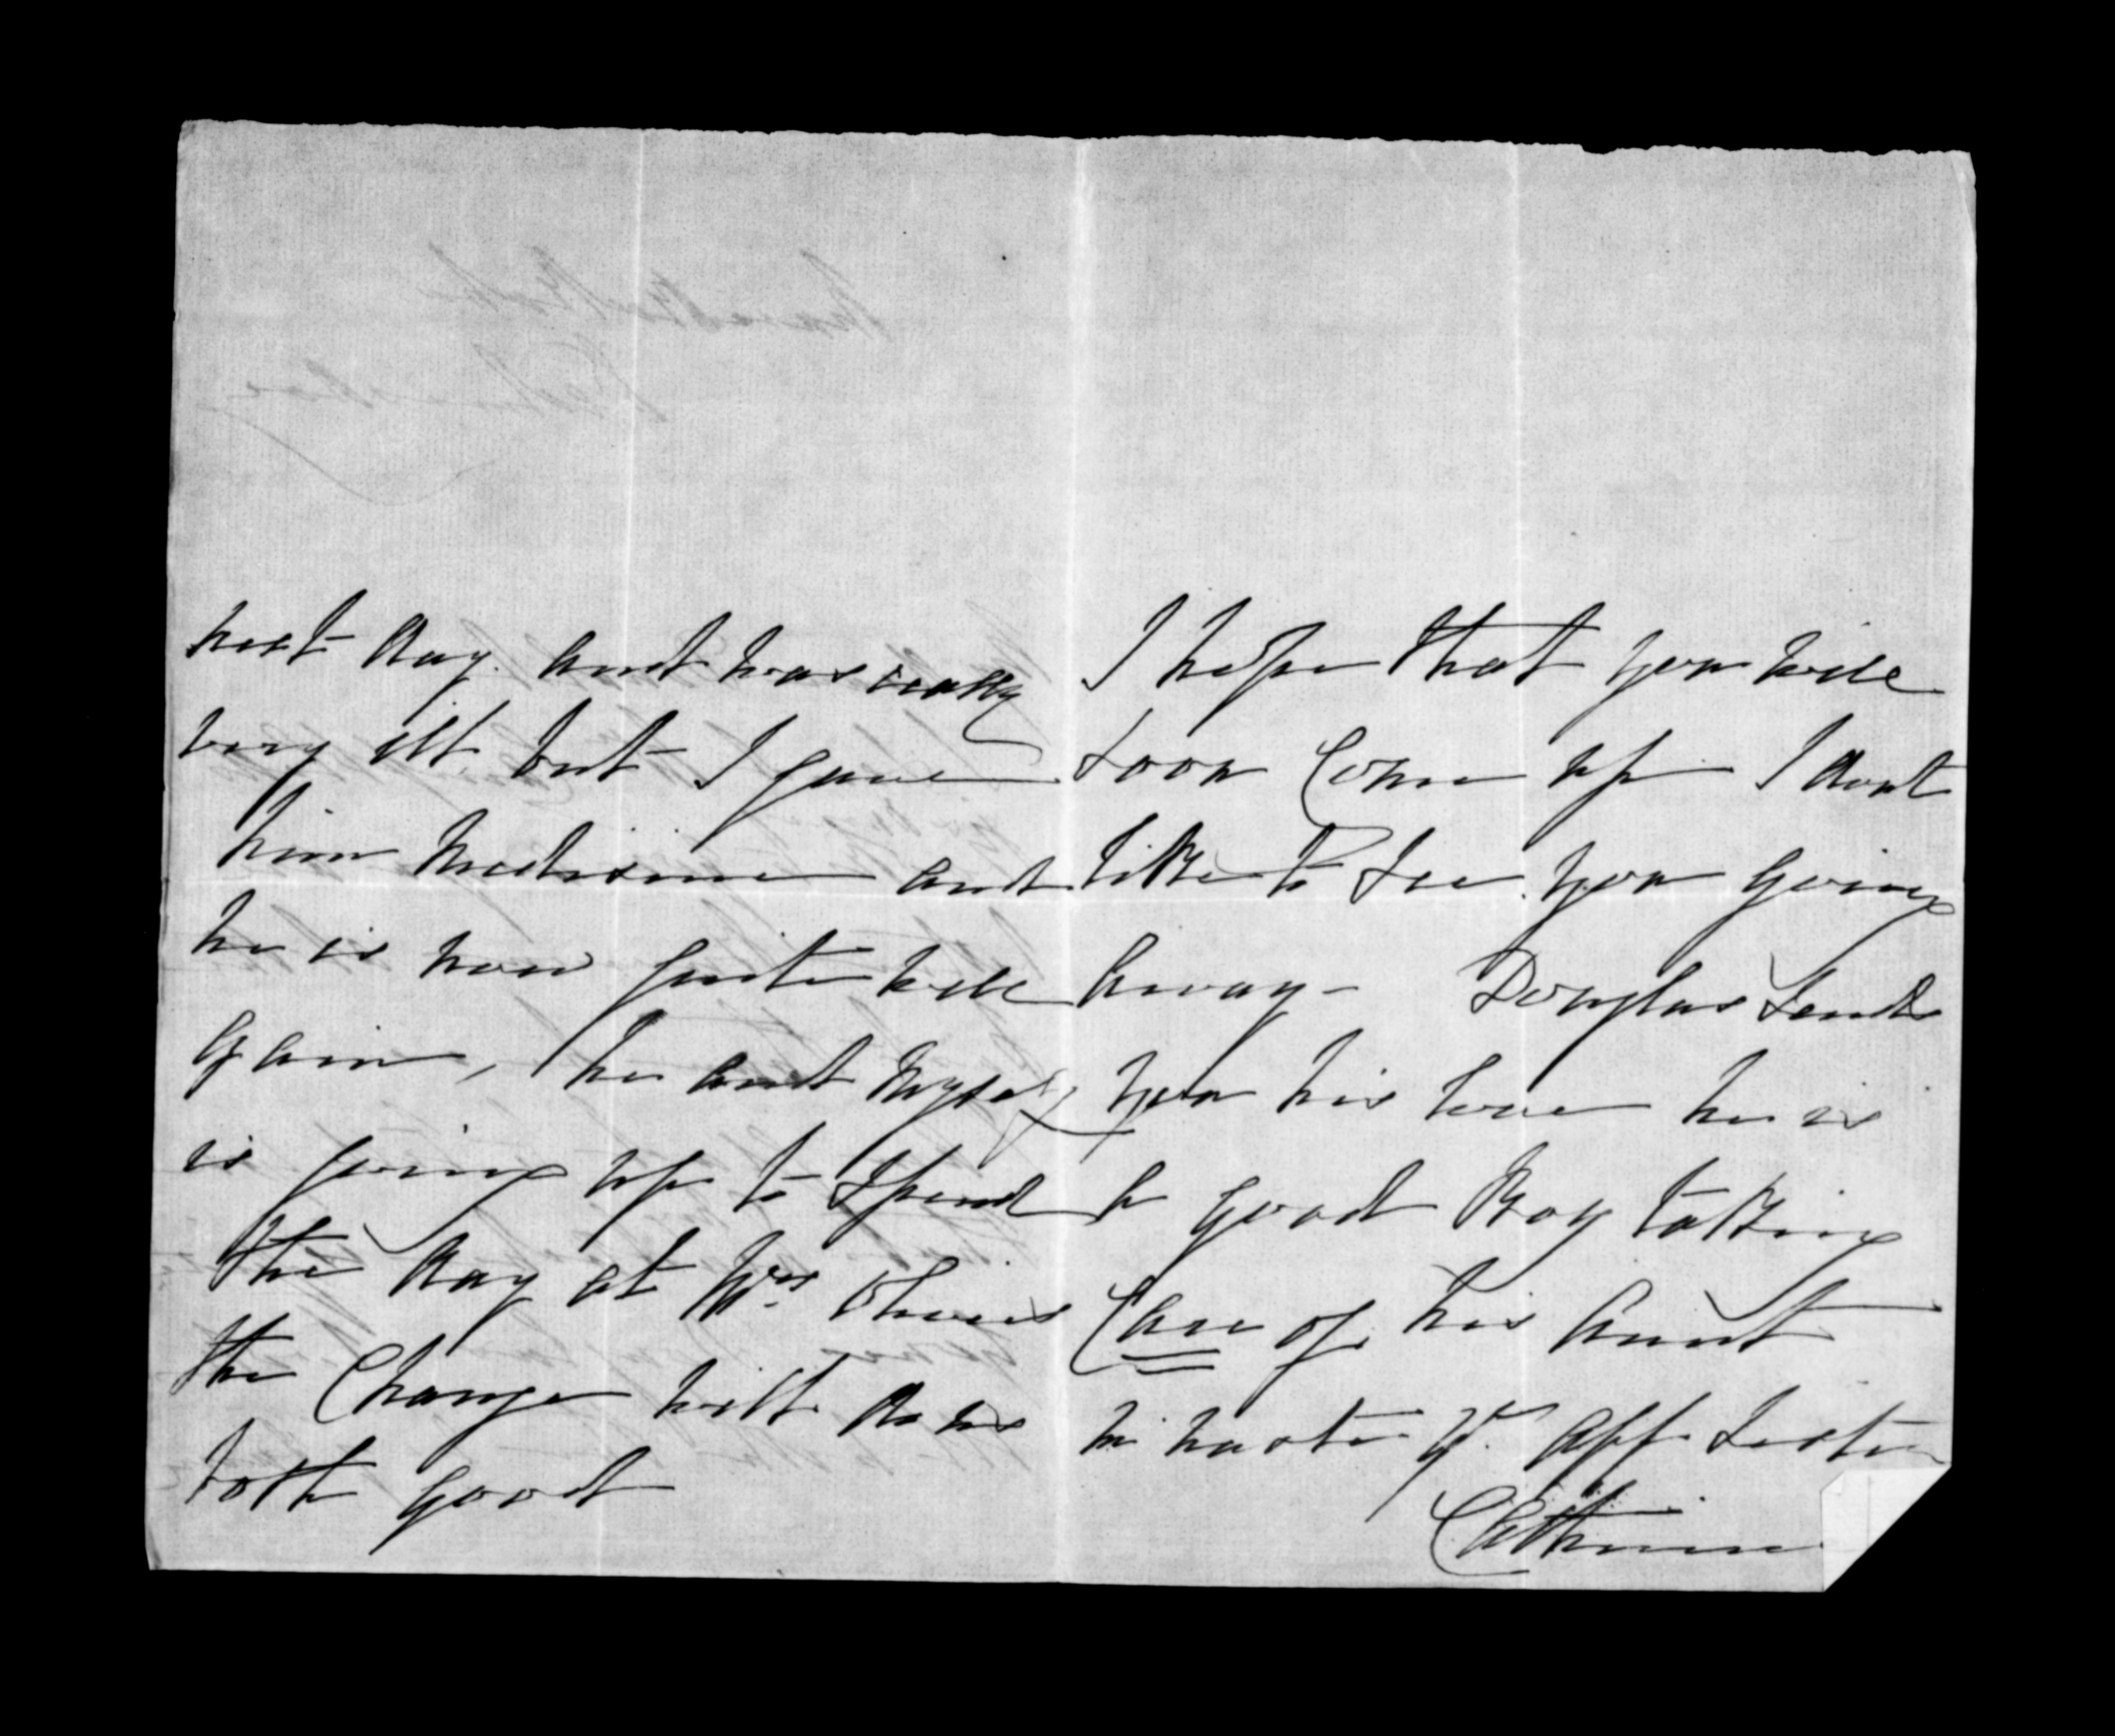 next day. and was really
very ill. but I gave
him medisine and
he is now quite well
again, he and myself
is going up to spend
the day at Mrs
the Change will do us
both good
I hope that you will
soon Come up I dont
like to see you going
away - Douglas sends
you his love he is
a good Boy taking
Care of his Aunt
in haste yr aff Sister
Catherine